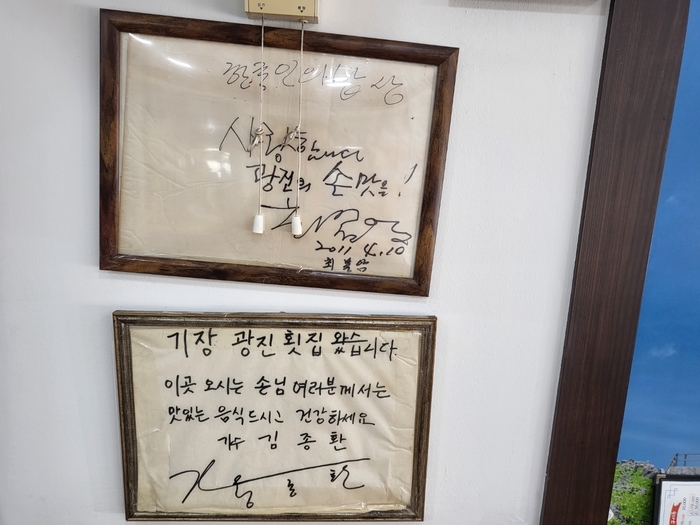 한국인의 밥상
사랑합니다
광진의 손맛을!
2011 4.10
최불암
기장 광진횟집 왔습니다.
이곳 오시는 손님 여러분께서는
맛있는 음식드시고 건강하세요
가수 김종환